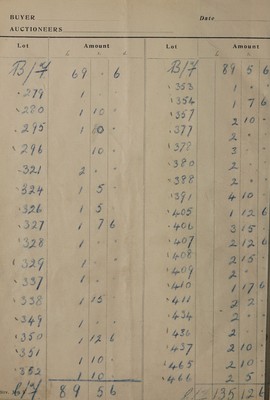 BUYER Date
AUCTIONEERS
Lot Amount Lot Amount
£ s d £ s d
B/F 69 · 6
279 1 · ·
280 1 10 ·
295 1 10 ·
296 10 ·
321 2 · ·
324 1 5 ·
326 1 5 ·
327 1 7 6
328 1 · ·
329 1 · ·
337 1 · ·
338 1 15 ·
349 1 · ·
350 1 12 6
351 1 10 ·
352 1 10 ·
89 5 6
B/F 89 5 6
353 1 · ·
354 1 7 6
357 2 10 ·
377 2 · ·
378 3 · ·
380 2 · ·
388 2 · ·
391 4 10 ·
405 1 12 6
406 3 15 ·
407 2 12 6
408 2 15 ·
409 2 · ·
410 1 17 6
411 2 2 ·
434 2 · ·
436 2 · ·
437 2 10 ·
465 2 10 ·
466 2 5 ·
135 12 6